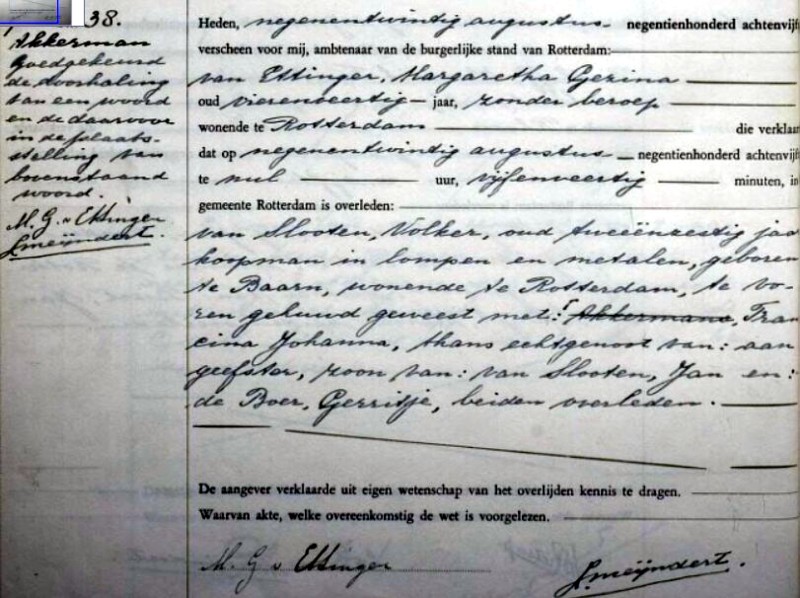 38.
Akkerman
Goedgekeurd
de doorhaling
van een woord
en de daarvoor
in de plaats-
stelling van
bovenstaand
woord.
M. G. v Ettinger
Heden, negenentwintig augustus negentienhonderd achtenvijft
verscheen voor mij, ambtenaar van de burgerlijke stand van Rotterdam:
van Ettinger, Margaretha Gezina
oud vierenveertig jaar, zonder beroep
wonende te Rotterdam die verklaa
dat op negenentwintig augustus negentienhonderd achtenvijft
te nul uur, vijfenveertig minuten, in
gemeente Rotterdam is overleden:
van Slooten, Volker, oud tweeënzestig jaa
koopman in lompen en metalen, geboren
te Baarn, wonende te Rotterdam, te vo-
ren gehuwd geweest met: Akkermans, Fran
cina Johanna, thans echtgenoot van: aan
geefster, zoon van: van Slooten, Jan en:
de Boer, Gerritje, beiden overleden.
De aangever verklaarde uit eigen wetenschap van het overlijden kennis te dragen.
Waarvan akte, welke overeenkomstig de wet is voorgelezen.
M. G v Ettinger